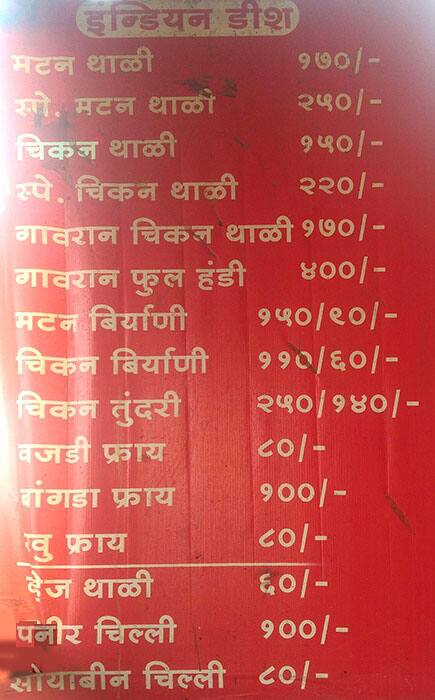 इन्डियन डीश
मटन थाळी १७०/-
स्पे. मटन थाळी २५०/-
चिकन थाळी १५०/-
स्पे. चिकन थाळी २२०/-
गावरान चिकन थाळी १७०/-
गावरान फुल हंडी ४००/-
मटन बिर्याणी १५०/९०/-
चिकन बिर्याणी ११०/६०/-
चिकन तुंदरी २५०/१४०/-
वजडी फ्राय ८०/-
बांगडा फ्राय १००/-
फ्राय ८०/-
व्हेज थाळी ६०/-
पनीर चिल्ली १००/-
सोयाबीन चिल्ली ८०/-